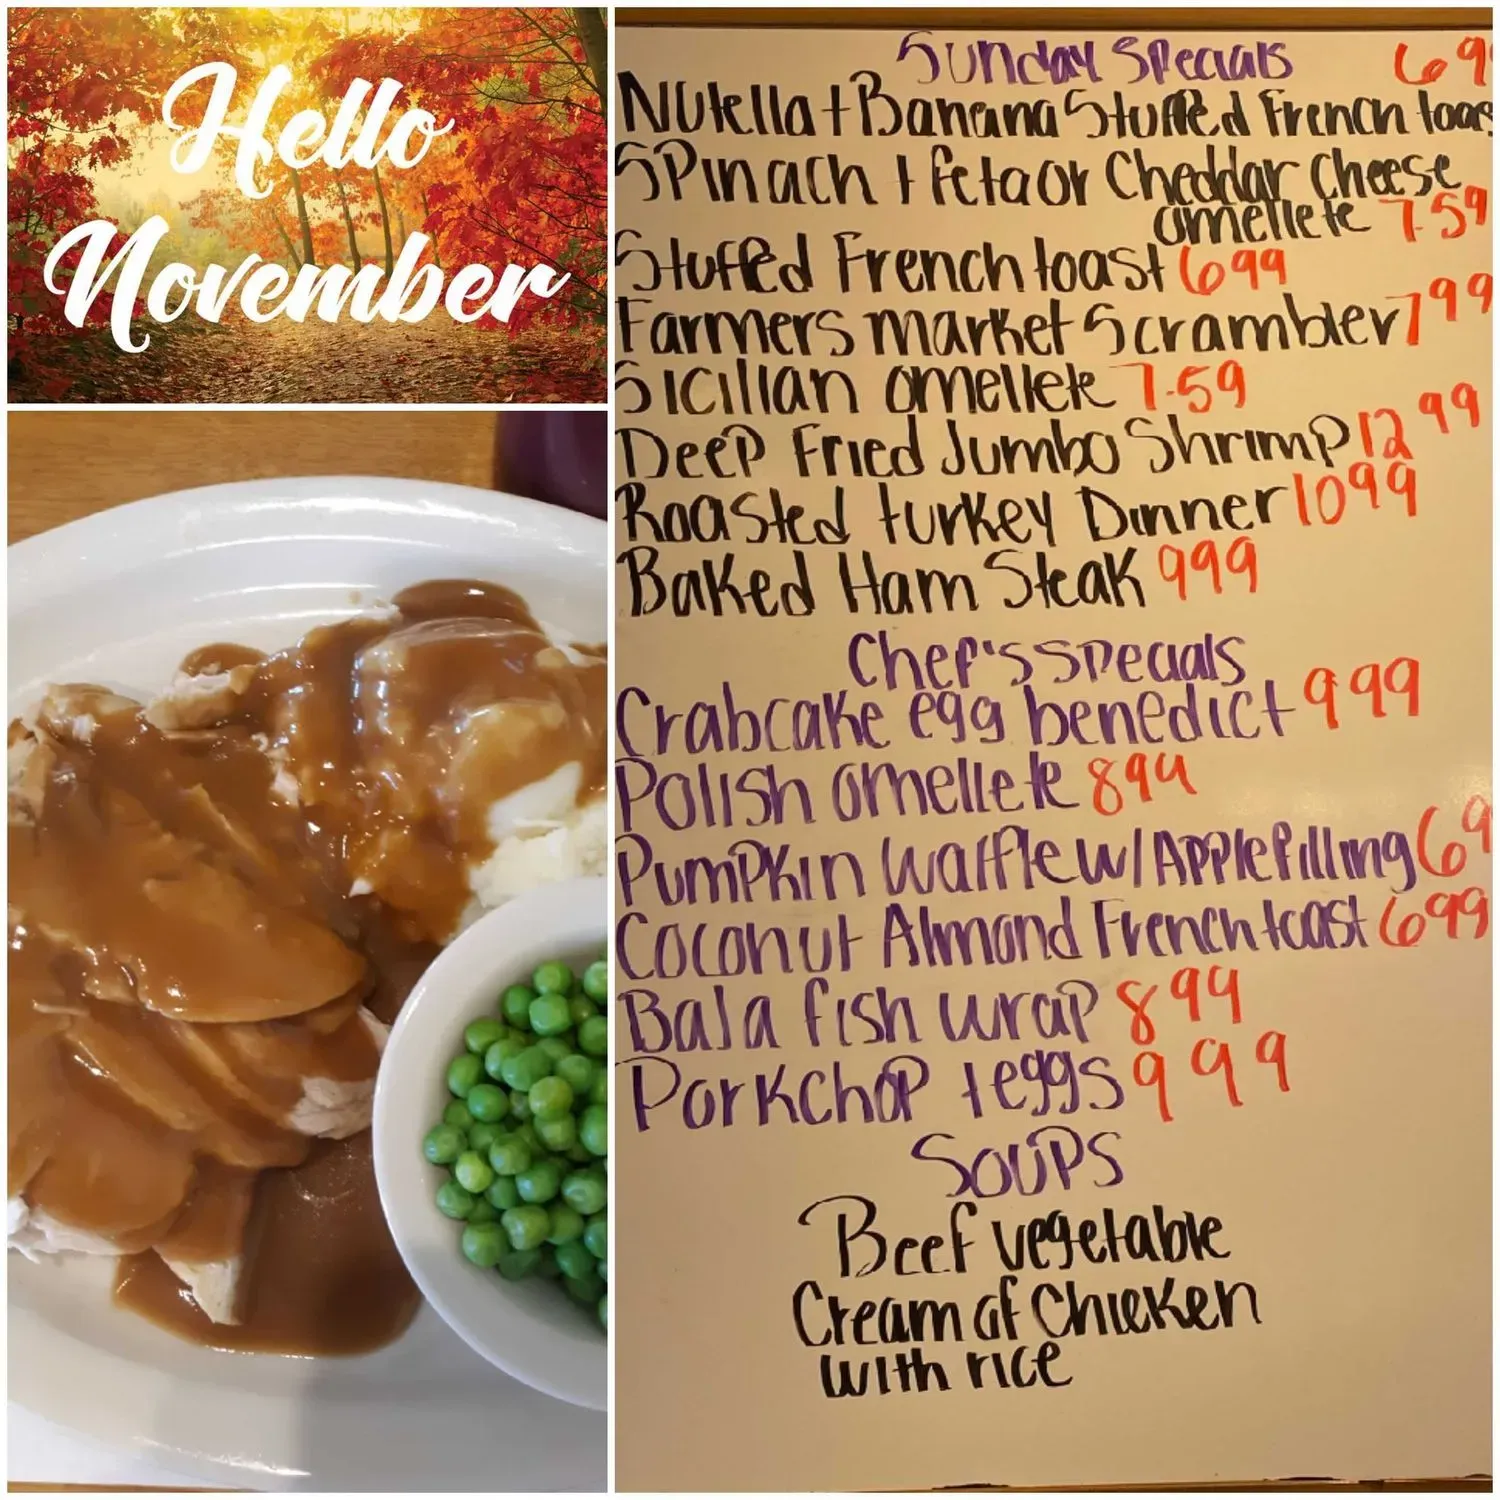 Hello
November
Sunday Specials 69
Nutella + Banana Stuffed French toas
Spinach + feta or Cheddar Cheese
omellete 7.59
Stuffed French toast 699
Farmers market Scrambler 799
Sicilian omellete 7.59
Deep Fried Jumbo Shrimp 12 99
Roasted turkey Dinner 10 99
Baked Ham Steak 999
Chef's specials
Crabcake egg benedict 999
Polish omellete 899
Pumpkin waffle w/ Apple filling 69
Coconut Almond French toast 699
Baja fish wrap 899
Porkchop + eggs 999
Soups
Beef vegetable
Cream of Chicken
with rice